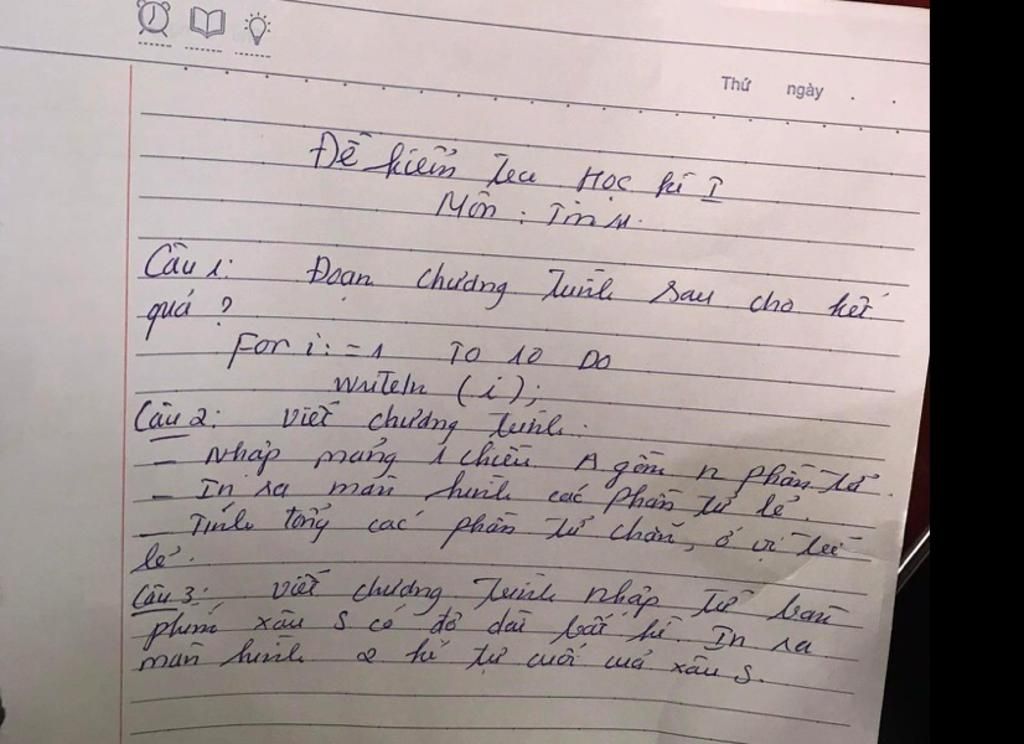 Thứ ngày
Đề kiểm tra Học kì I
Môn : Tin 11.
Câu 1: Đoạn chương trình sau cho kết
quả ?
For i: = 1 To 10 Do
Writeln (i);
Câu 2: Viết chương trình:
- Nhập mảng 1 chiều A gồm n phần tử.
- In ra màn hình các phần tử lẻ.
- Tính tổng các phần tử chẵn, ở vị trí
lẻ.
Câu 3: Viết chương trình nhập từ bàn
phím xâu S có độ dài bất kì. In ra
màn hình 2 kí tự cuối của xâu S.